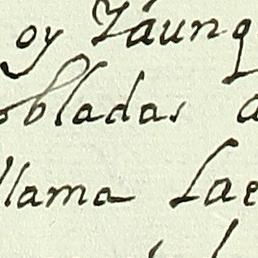 oy Yáunq
obladas a
llama Lae